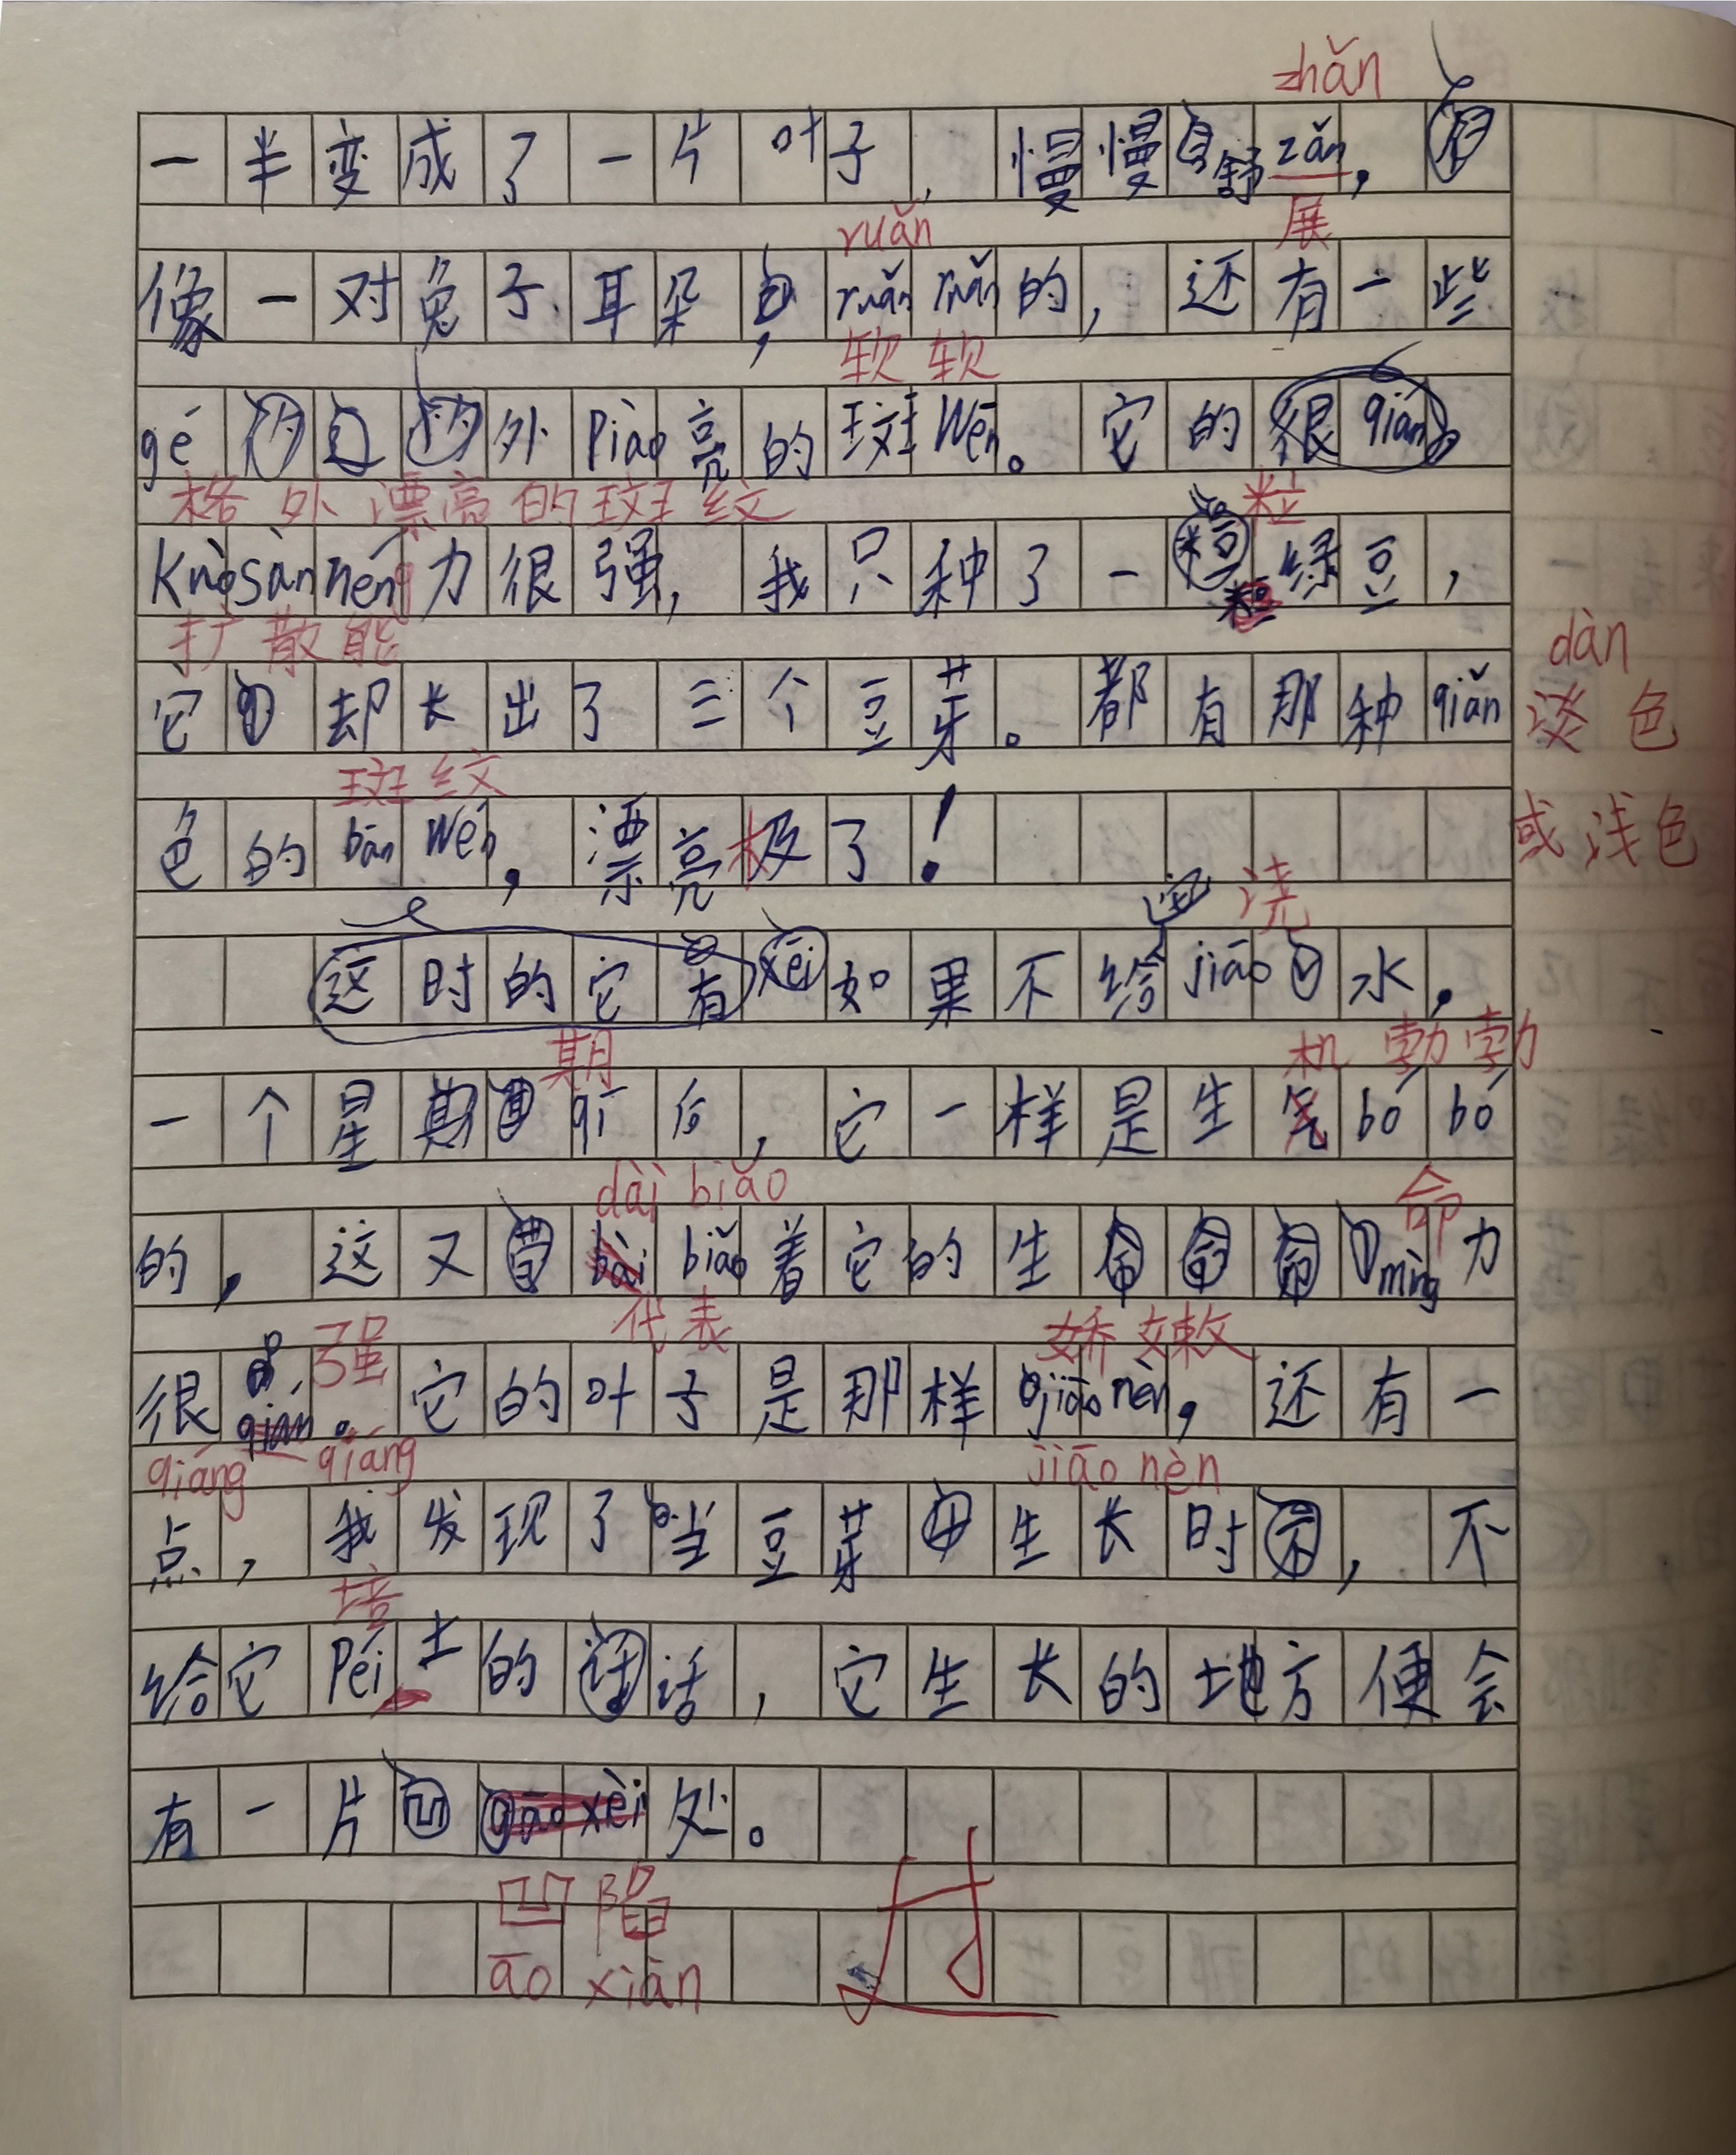 zhǎn
一半变成了一片叶子,慢慢舒zǎn,
ruǎn 展
像一对兔子耳朵,ruǎn ruǎn的,还有一些
软软
gé外piào亮的斑wén。它的很qián。
格外漂亮的斑纹 粒
Kuòsànnéng力很强,我只种了一粒绿豆,
扩散能 dàn
它却长出了三个豆芽。都有那种qiǎn 淡色
斑纹
色的bān wén,漂亮极了! 或浅色
浇
这时的它有xēi如果不给它jiāo水,
期 机勃勃
一个星期qī后,它一样是生気bó bó
dài biǎo 命
的,这又bài biǎo着它的生mìng力
代表 娇嫩
很qián强。它的叶子是那样jiāo nèn,还有一
qiáng qiáng jiāo nèn
点,我发现了当豆芽生长时,不
培
给它Péi土的话,它生长的地方便会
有一片凹āo xèi处。
凹陷
āo xiàn